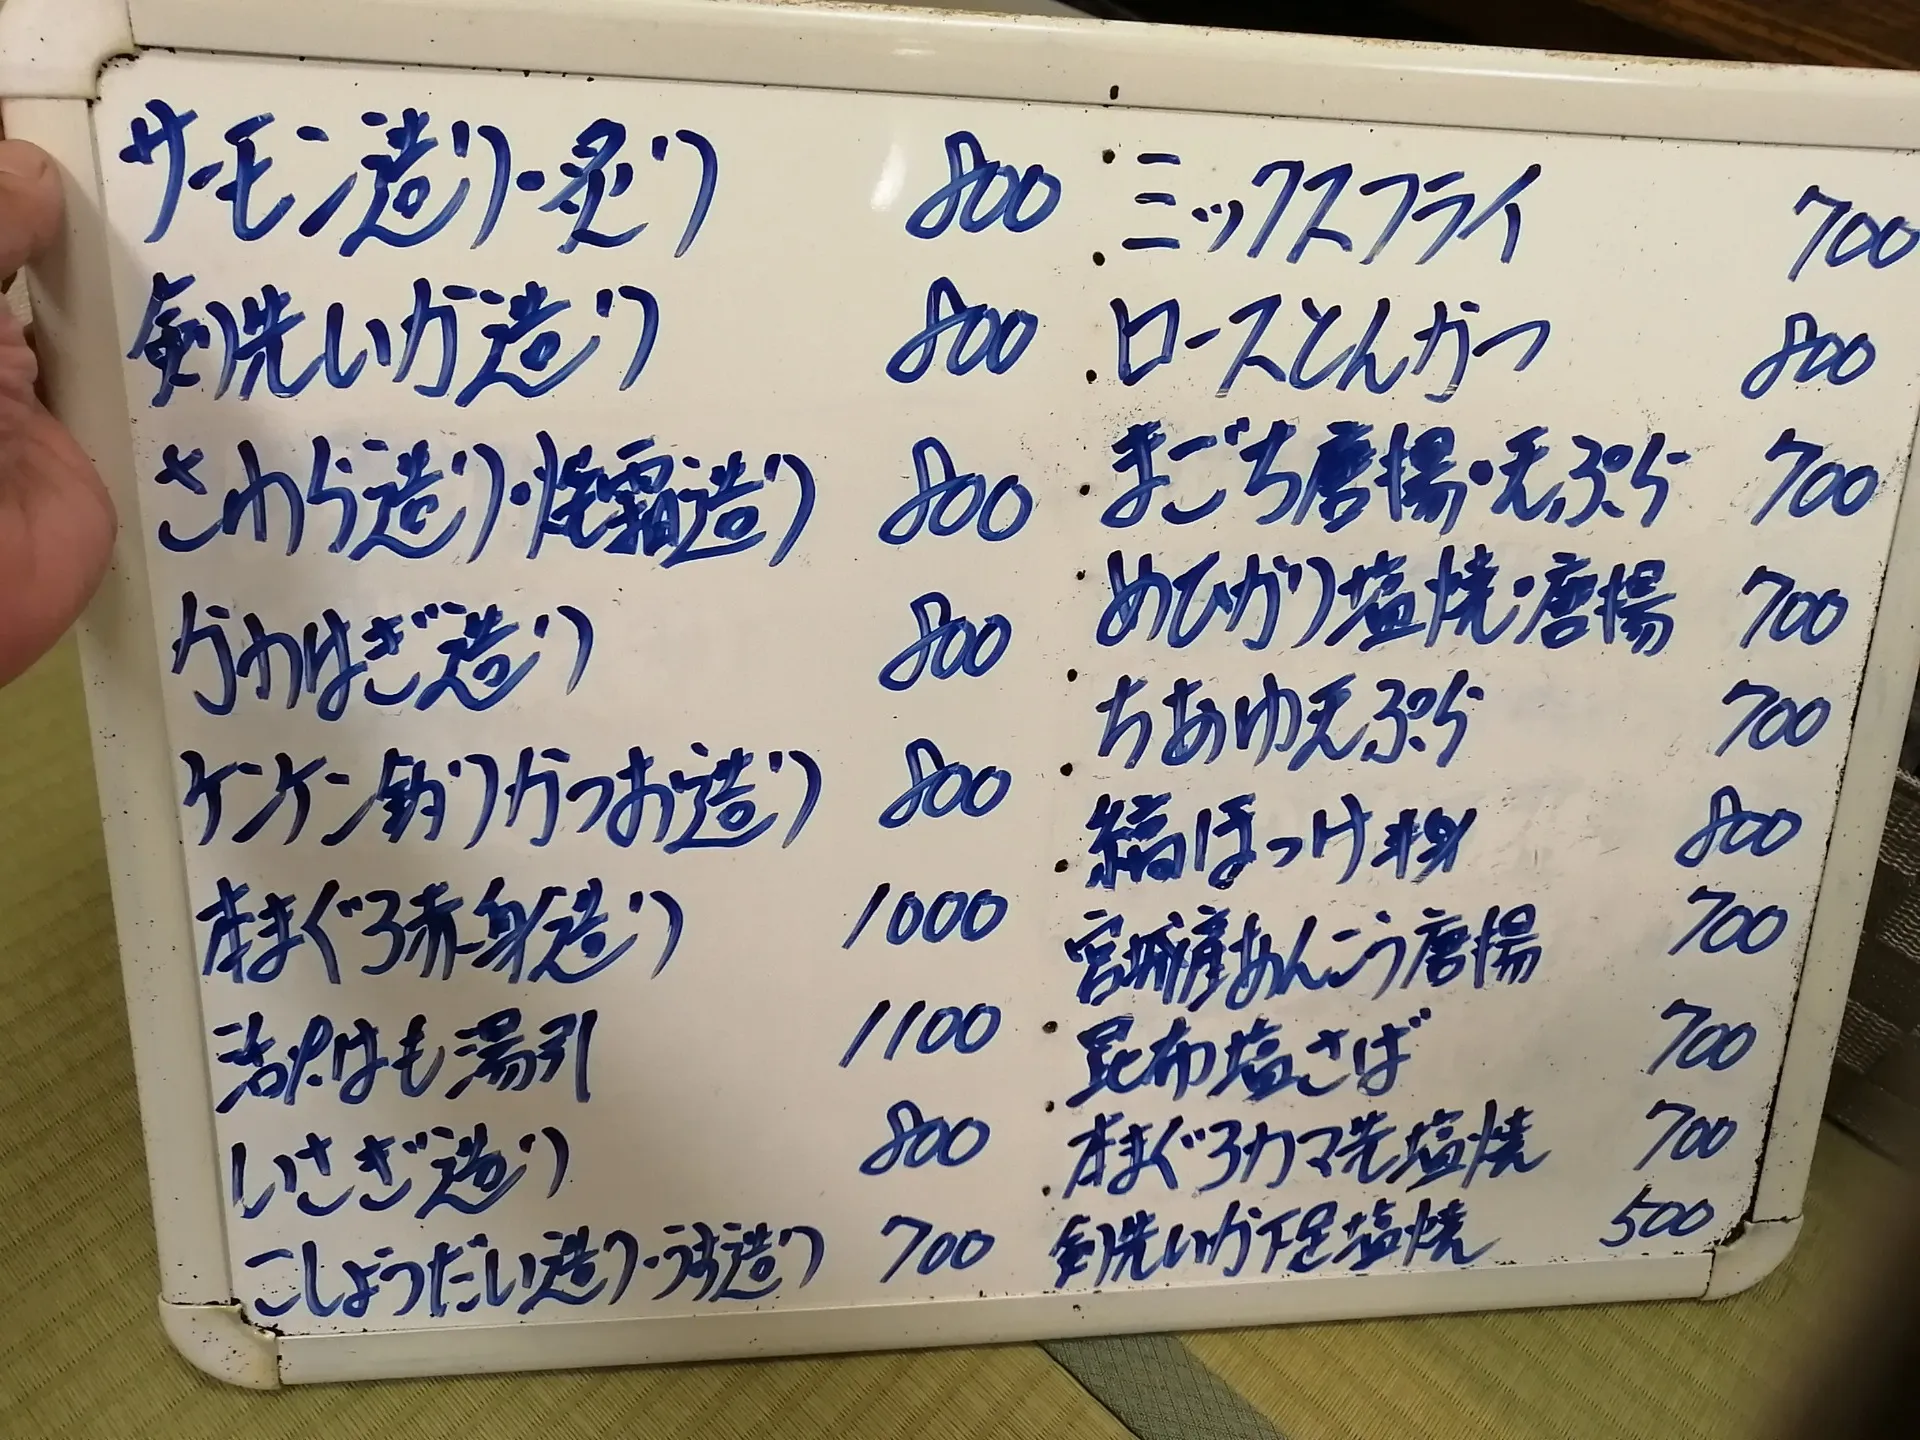 サーモン造り・炙り 800
剣先いか造り 800
さわら造り・焼霜造り 800
かわはぎ造り 800
ケンケン釣りかつお造り 800
本まぐろ赤身造り 1000
活〆はも湯引 1100
いさぎ造り 800
こしょうだい造り・うす造り 700
ミックスフライ 700
ロースとんかつ 800
まごち唐揚・天ぷら 700
めひかり塩焼・唐揚 700
ちあゆ天ぷら 700
縞ほっけ半身 800
宮城産あんこう唐揚 700
昆布塩さば 700
本まぐろカマ先塩焼 700
剣先いか下足塩焼 500